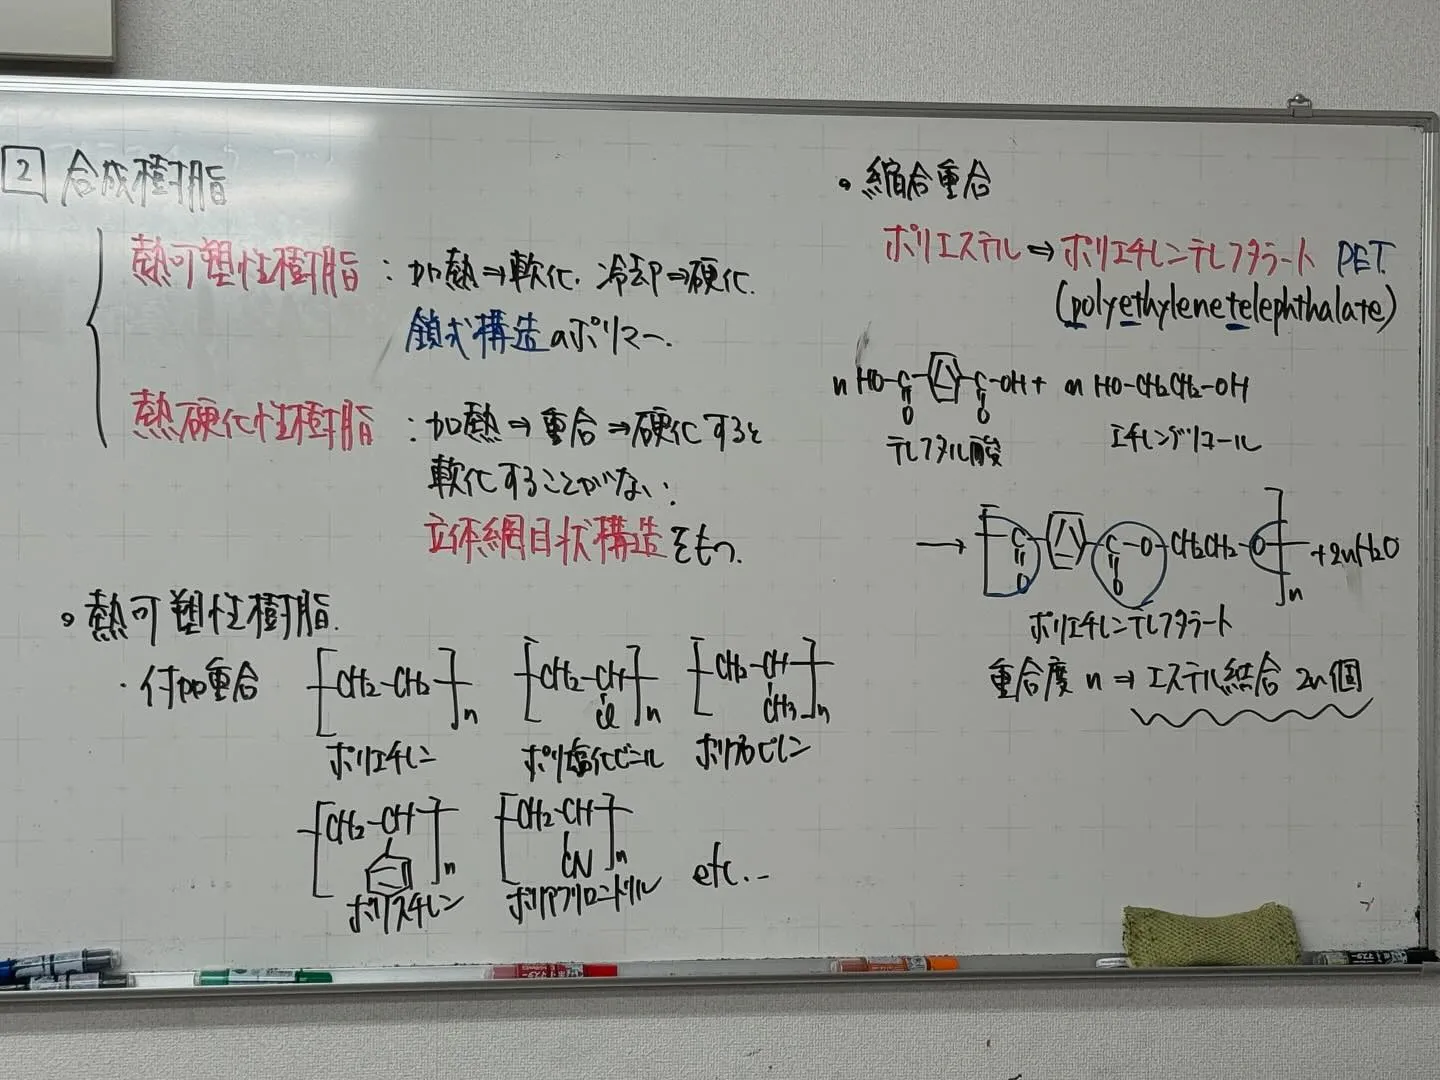 2 合成樹脂
熱可塑性樹脂：加熱⇒軟化. 冷却⇒硬化.
鎖式構造のポリマー.
熱硬化性樹脂：加熱⇒重合⇒硬化すると
軟化することがない.
立体網目状構造をもつ.
。熱可塑性樹脂.
・付加重合
[CH2-CH2]n
ポリエチレン
[CH2-CH]n
Cl
ポリ塩化ビニール
[CH2-CH]n
CH3
ポリプロピレン
[CH2-CH]n
ポリスチレン
[CH2-CH]n
CN
ポリアクリロニトリル
etc...
。縮合重合
ポリエステル⇒ポリエチレンテレフタラート PET
(polyethylenetelephthalate)
n HO-C-C-OH + n HO-CH2CH2-OH
O O
テレフタル酸 エチレングリコール
→ [C-C-O-CH2CH2-O]n + 2nH2O
O O
ポリエチレンテレフタラート
重合度 n ⇒ エステル結合 2n個